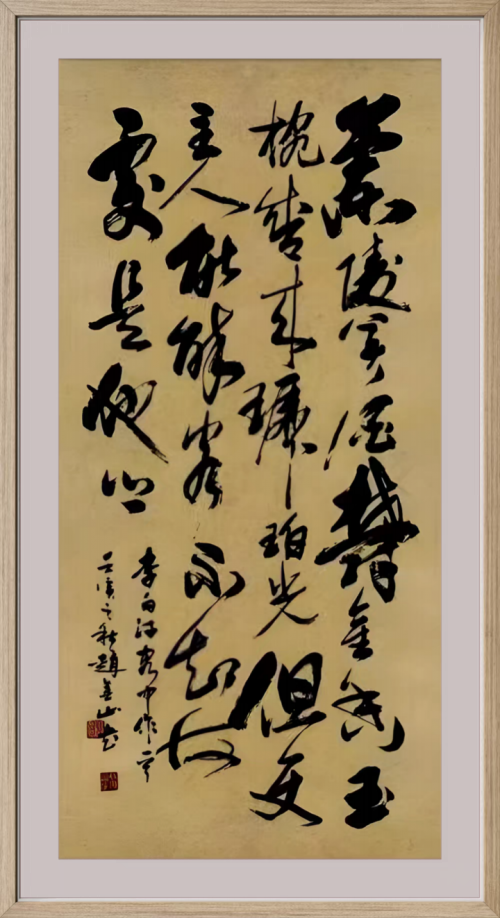 蘭陵美酒鬱金香玉
椀盛來琥珀光但使
主人能醉客不知何
處是他鄉
李白詩客中作
之秋趙金山書